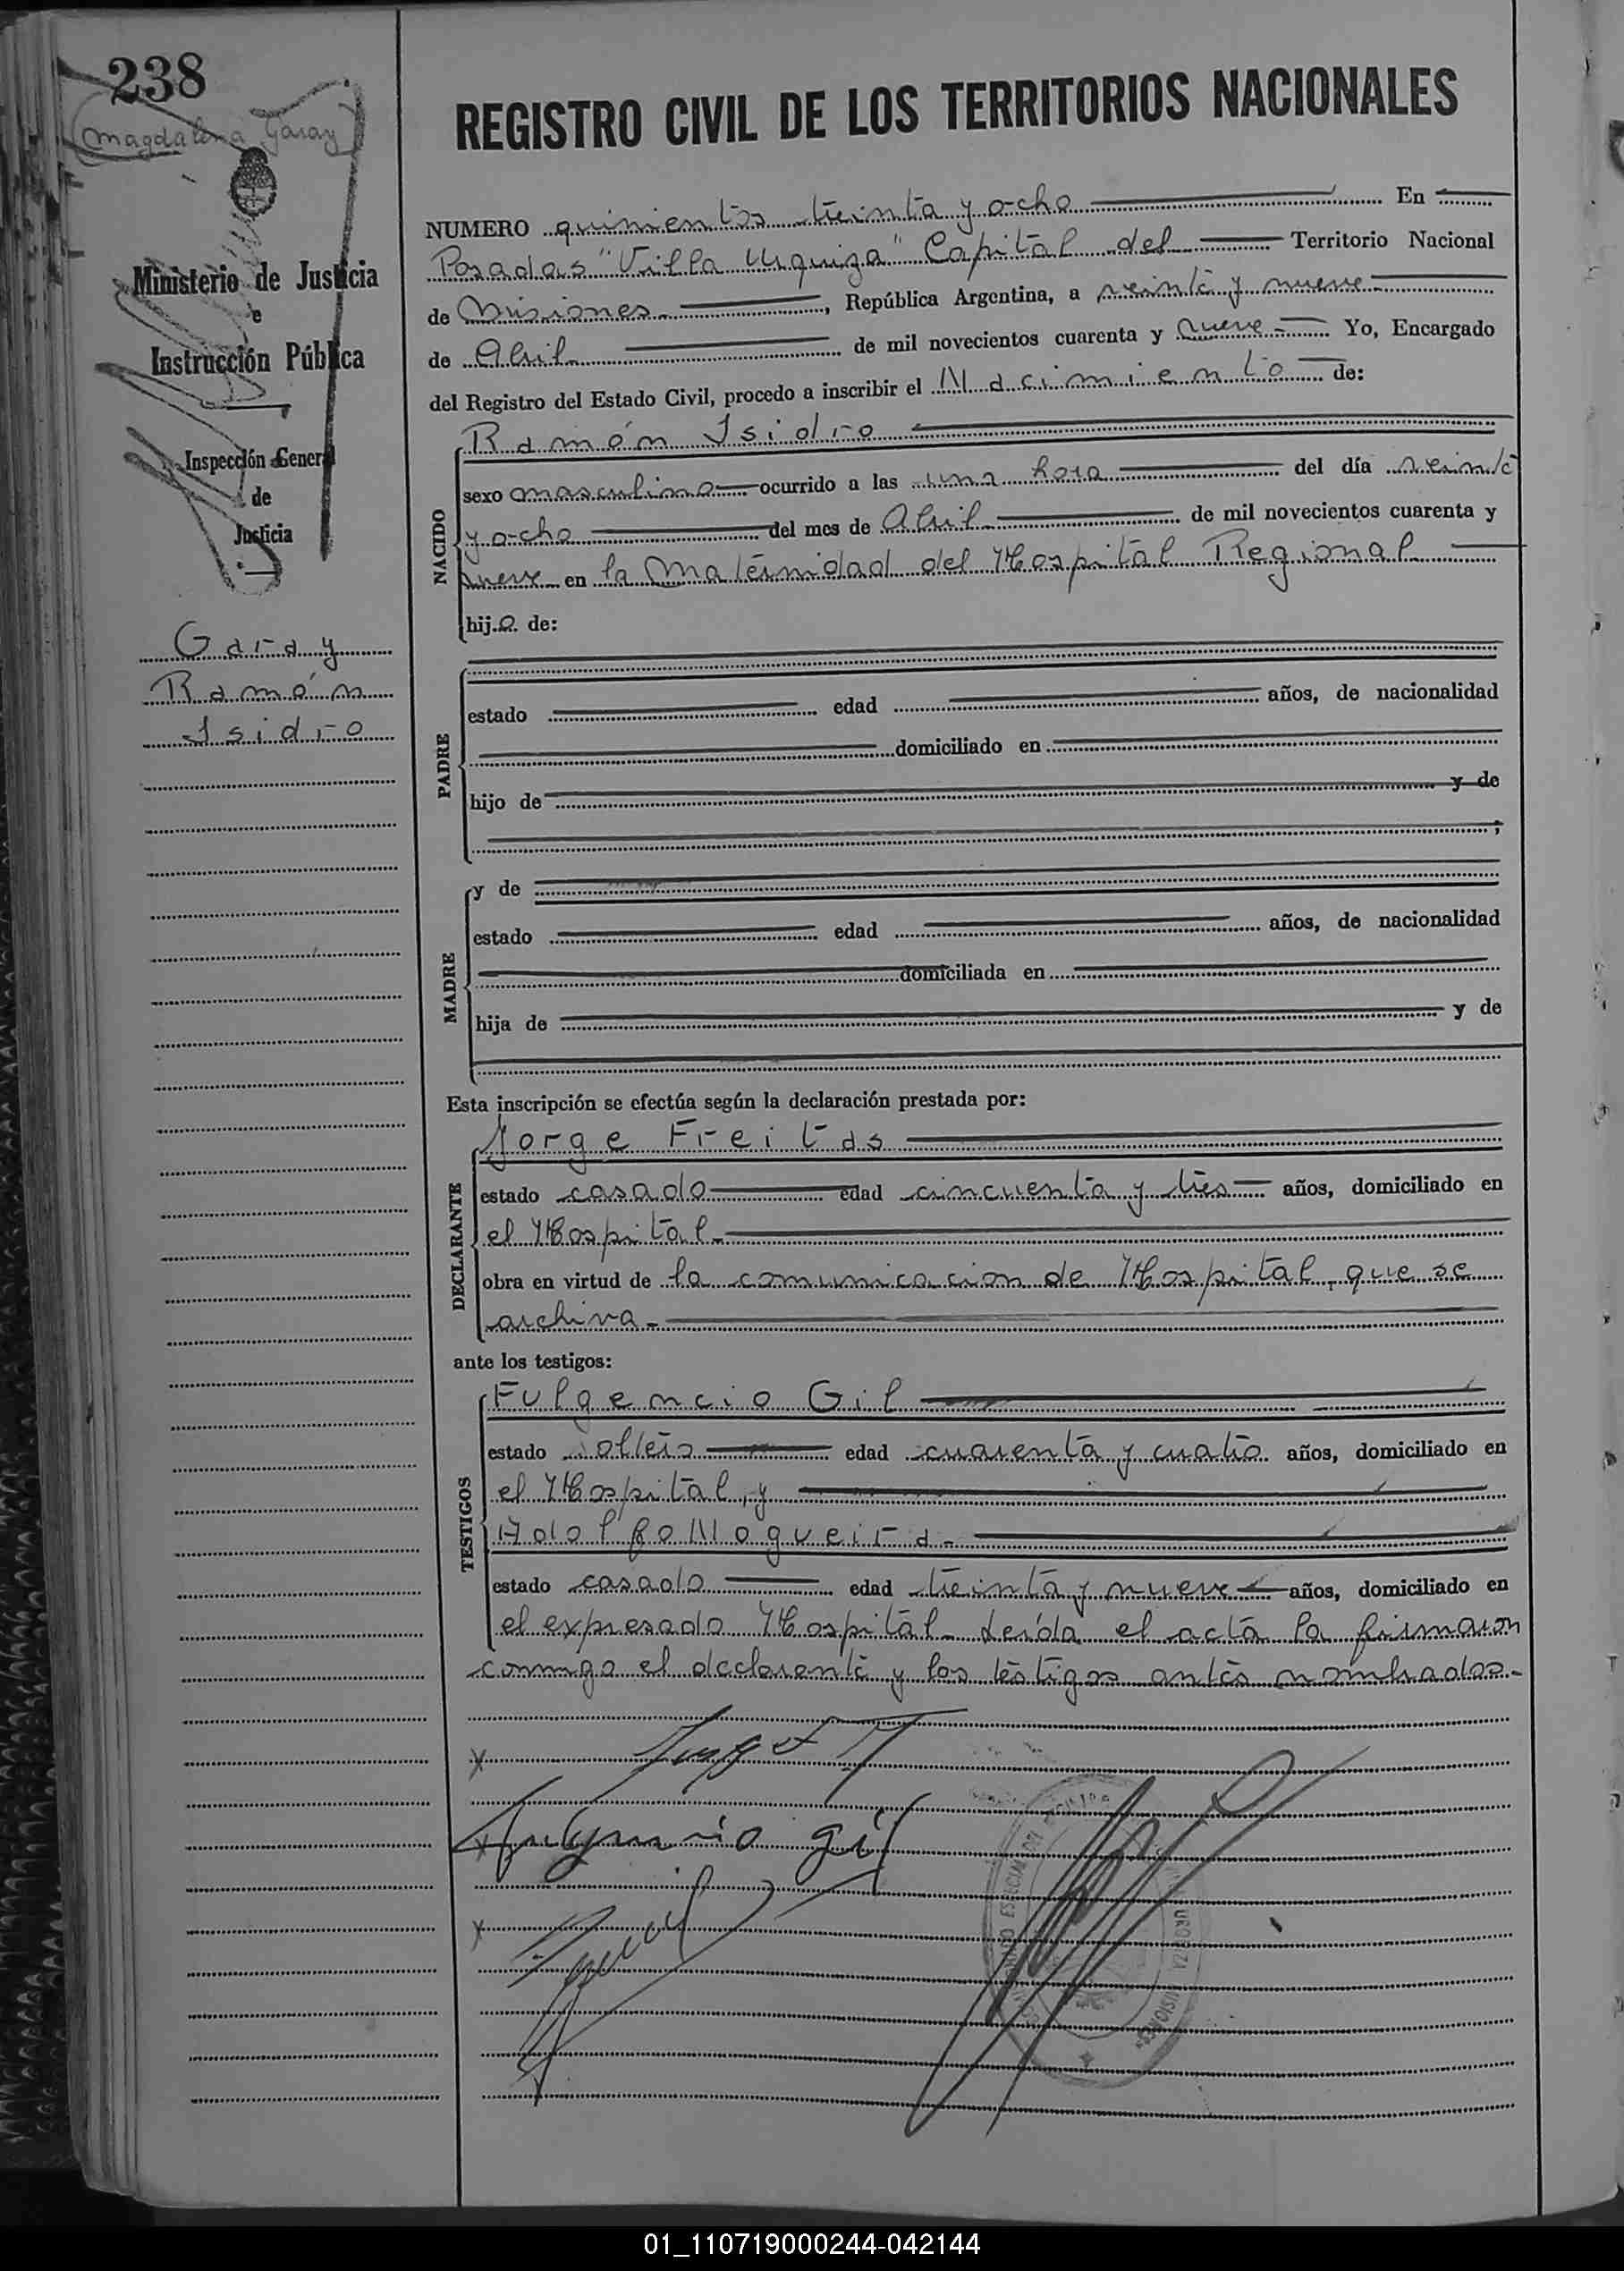 238
(Magdalena Garay)
REGISTRO CIVIL DE LOS TERRITORIOS NACIONALES
NUMERO quinientos treinta y ocho En
Posadas "Villa Urquiza" Capital del Territorio Nacional
de Misiones, República Argentina, a veinte y nueve
de Abril de mil novecientos cuarenta y nueve Yo, Encargado
del Registro del Estado Civil, procedo a inscribir el Nacimiento de:
Ministerio de Justicia
e
Instrucción Pública
Inspección General
de
Justicia
Garay
Ramón
Isidro
NACIDO
Ramón Isidro
sexo masculino ocurrido a las una hora del día veinte
y ocho del mes de Abril de mil novecientos cuarenta y
nueve en la Maternidad del Hospital Regional
hijo de:
PADRE
estado edad años, de nacionalidad
domiciliado en
hijo de y de
;
MADRE
y de
estado edad años, de nacionalidad
domiciliada en
hija de y de
Esta inscripción se efectúa según la declaración prestada por:
DECLARANTE
Jorge Freitas
estado casado edad cincuenta y tres años, domiciliado en
el Hospital.
obra en virtud de la comunicacion de Hospital, que se
archiva.
ante los testigos:
TESTIGOS
Fulgencio Gil
estado soltero edad cuarenta y cuatro años, domiciliado en
el Hospital, y
Adolfo Nogueira.
estado casado edad treinta y nueve años, domiciliado en
el expresado Hospital. Leída el acta la firmaron
conmigo el declarante y los testigos antes nombrados.
x
x Fulgencio Gil
x
01_110719000244-042144